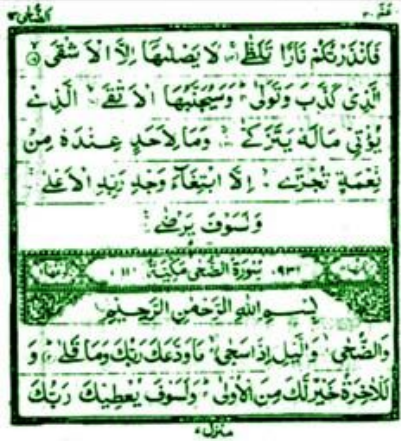 الضحى ٩٣ عم ٣٠
فَاَنْذَرْتُكُمْ نَارًا تَلَظّٰى ۚ لَا يَصْلٰىهَا اِلَّا الْاَشْقَى ۙ
الَّذِيْ كَذَّبَ وَتَوَلّٰى ؕ وَسَيُجَنَّبُهَا الْاَتْقَى ۙ الَّذِيْ
يُؤْتِيْ مَالَهٗ يَتَزَكّٰى ۚ وَمَا لِاَحَدٍ عِنْدَهٗ مِنْ
نِّعْمَةٍ تُجْزٰٓى ۙ اِلَّا ابْتِغَآءَ وَجْهِ رَبِّهِ الْاَعْلٰى ۚ
وَلَسَوْفَ يَرْضٰى
٩٣ سُوْرَةُ الضُّحٰى مَكِّيَّةٌ ١١
بِسْمِ اللّٰهِ الرَّحْمٰنِ الرَّحِيْمِ
وَالضُّحٰى ۙ وَالَّيْلِ اِذَا سَجٰى ۙ مَا وَدَّعَكَ رَبُّكَ وَمَا قَلٰى ؕ وَ
لَلْاٰخِرَةُ خَيْرٌ لَّكَ مِنَ الْاُوْلٰى ؕ وَلَسَوْفَ يُعْطِيْكَ رَبُّكَ
منزل